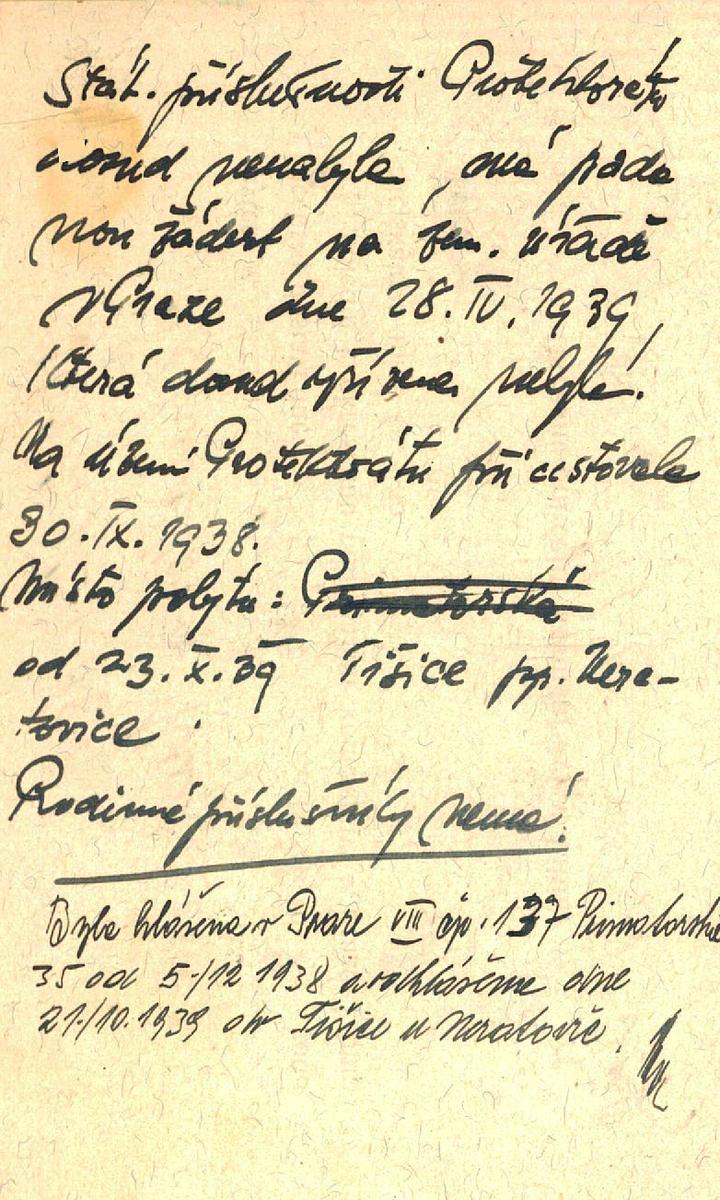 Stát. příslušnosti Protektorátu
dosud nenabyla, má poda
nou žádost na zem. úřadě
v Praze dne 28. IV. 1939,
která dosud vyřízena nebyla.
Na území Protektorátu přicestovala
30. IX. 1938.
Místo pobytu: Primátorská
od 23. X. 39 Tišice pp. Nera-
tovice
Rodinné příslušníky nemá.
Byla hlášena v Praze VIII čp. 137 Primátorská
35 od 5./12 1938 a odhlášena dne
21./10.1939 do Tišice u Neratovic.